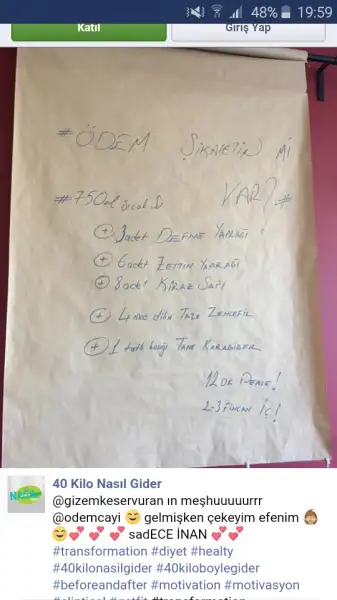 48% 19:59
Katıl Giriş Yap
#ÖDEM ŞİKAYETİN Mİ
VAR?#
#750ml sıcak S
+ 3 adet DEFNE YAPRAĞI !
+ 6 adet ZEYTİN YAPRAĞI
+ 8 adet KİRAZ SAPI
+ 4 ince dilim TAZE ZENCEFİL
+ 1 tatlı kaşığı TANE KARABİBER
12 DK DEMLE!
2-3 FİNCAN İÇ!
40 Kilo Nasıl Gider
@gizemkeservuran ın meşhuuuuurrr
@odemcayi 😊 gelmişken çekeyim efenim
sadECE İNAN 💕💕
#transformation #diyet #healty
#40kilonasilgider #40kiloboylegider
#beforeandafter #motivation #motivasyon